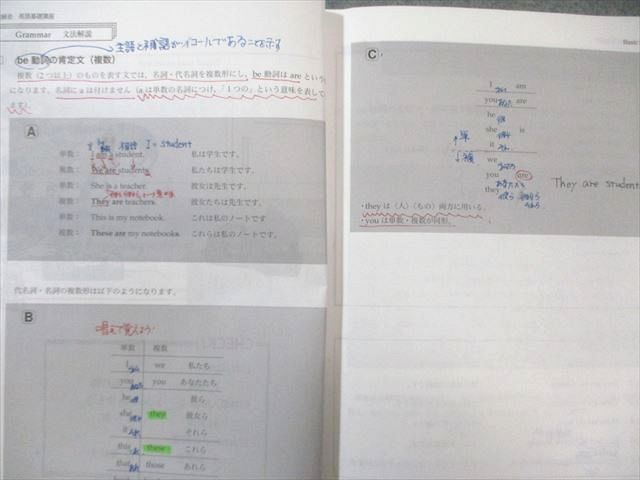 英語基礎講座
Grammar 文法解説
主語と補語がイコールであることを示す
be 動詞の肯定文（複数）
複数（2つ以上）のものを表す文では，名詞・代名詞を複数形にし，be 動詞は are という
になります。名詞に a は付けません（a は単数の名詞につけ，「1つの」という意味を表して
ます）。
A
I = student
単数： I am a student. 私は学生です。
複数： We are students. 私たちは学生です。
単数： She is a teacher. 彼女は先生です。
複数： They are teachers. 彼女たちは先生です。
単数： This is my notebook. これは私のノートです
複数： These are my notebooks. これらは私のノートです。
代名詞・名詞の複数形は以下のようになります。
B
唱えて覚えよう！
単数 複数
I we 私たち
you you あなたたち
he 彼ら
she they 彼女ら
it それら
this these これら
that those あれら
Basic
C
I am
you are
he
she is
it
単
複
we
you are
あなたたち
they
They are student
・they は（人）（もの）両方に用いる。
・you は単数・複数が同形。